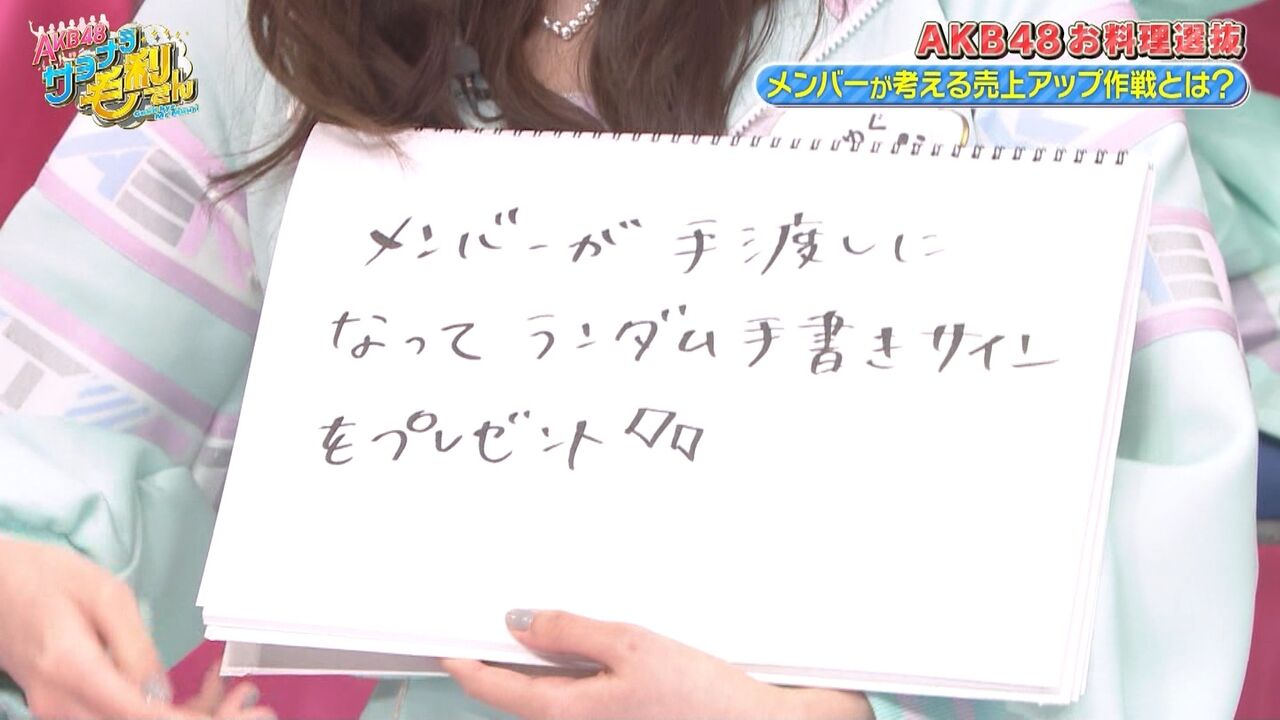 AKB48
サヨナラ
毛利さん
AKB48お料理選抜
メンバーが考える売上アップ作戦とは?
メンバーが手渡しに
なってランダム手書きサイン
をプレゼント